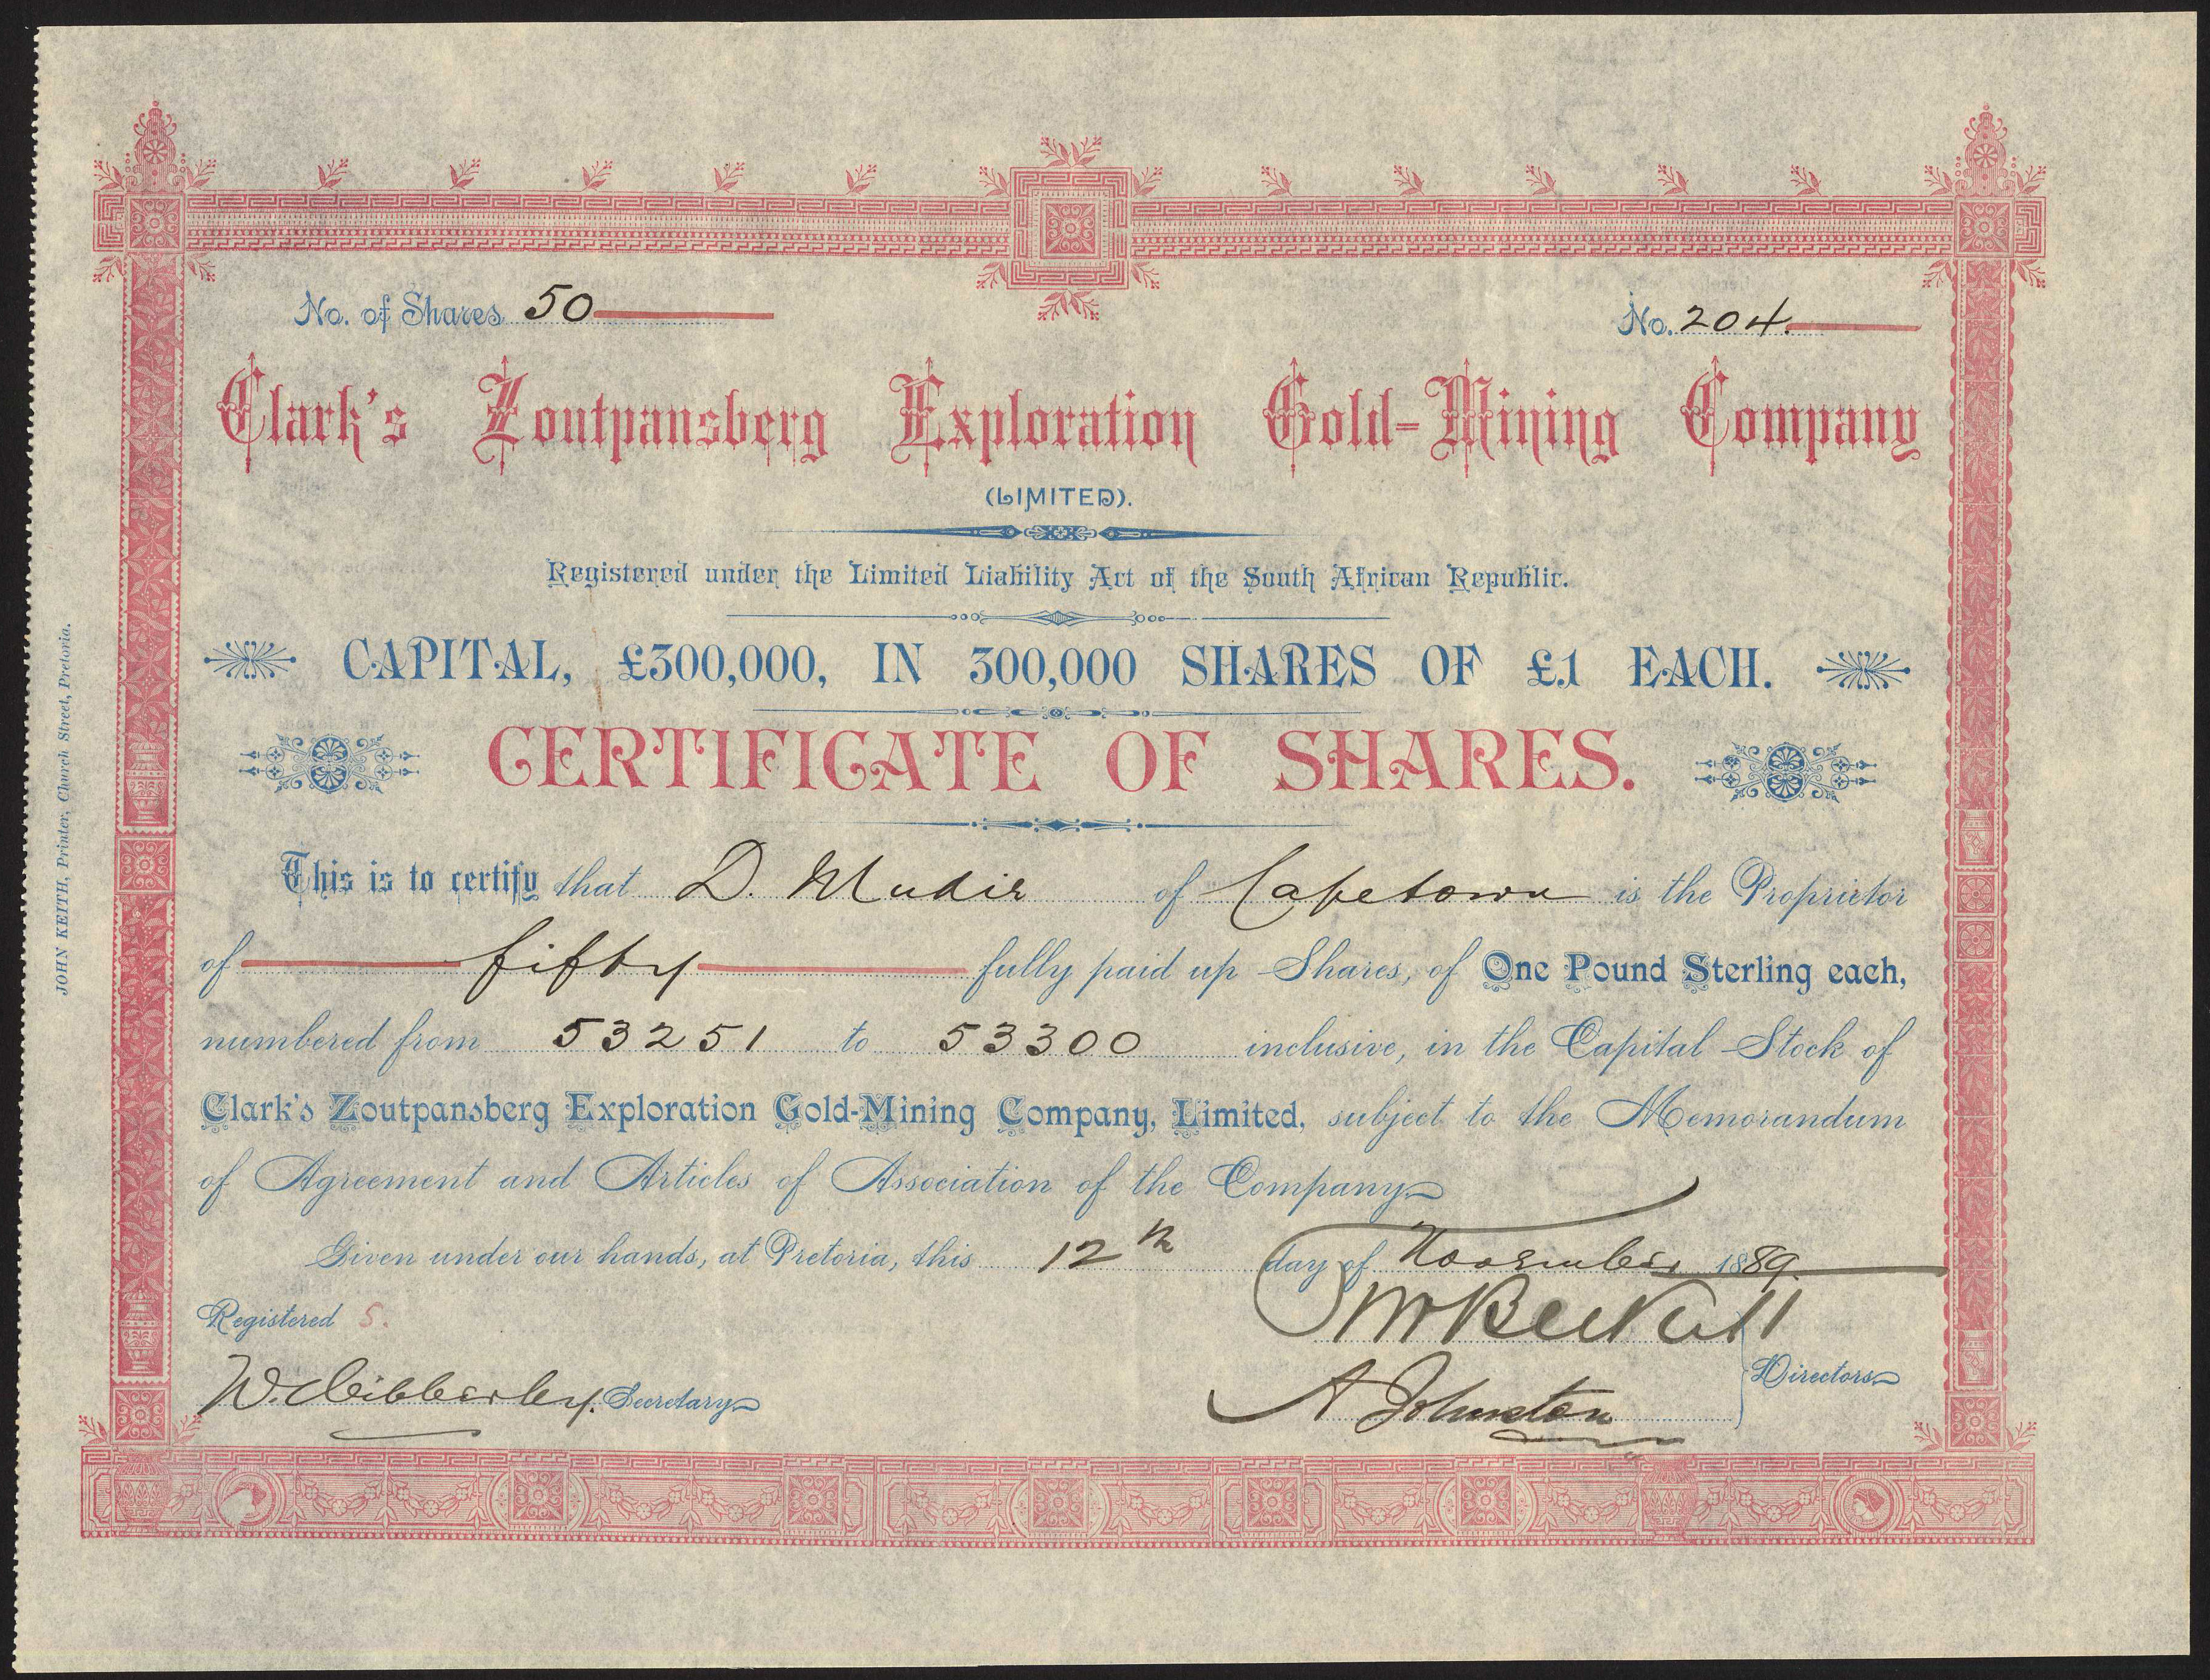 No. of Shares 50
No. 204.
Clark's Zoutpansberg Exploration Gold-Mining Company
(LIMITED).
Registered under the Limited Liability Act of the South African Republic.
CAPITAL, £300,000, IN 300,000 SHARES OF £1 EACH.
CERTIFICATE OF SHARES.
This is to certify that D. Mudie of Capetown is the Proprietor
of fifty fully paid up Shares, of One Pound Sterling each,
numbered from 53251 to 53300 inclusive, in the Capital Stock of
Clark's Zoutpansberg Exploration Gold-Mining Company, Limited, subject to the Memorandum
of Agreement and Articles of Association of the Company.
Given under our hands, at Pretoria, this 12th day of November 1889.
Registered S.
W. Cibberley. Secretary
TW Beckett
A Johnston
Directors
JOHN KEITH, Printer, Church Street, Pretoria.